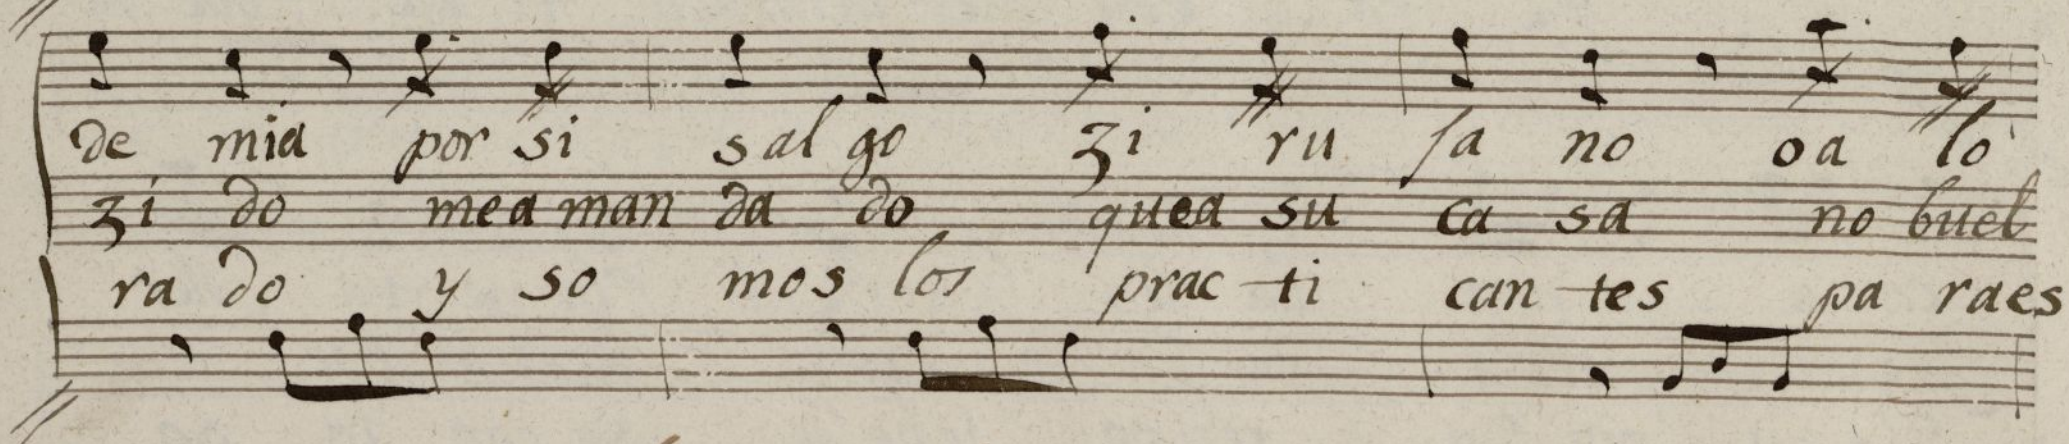 de mia por si sal go zi ru ja no oa lo
zi do mea man da do quea su ca sa no buel
ra do y so mos los prac ti can tes pa raes